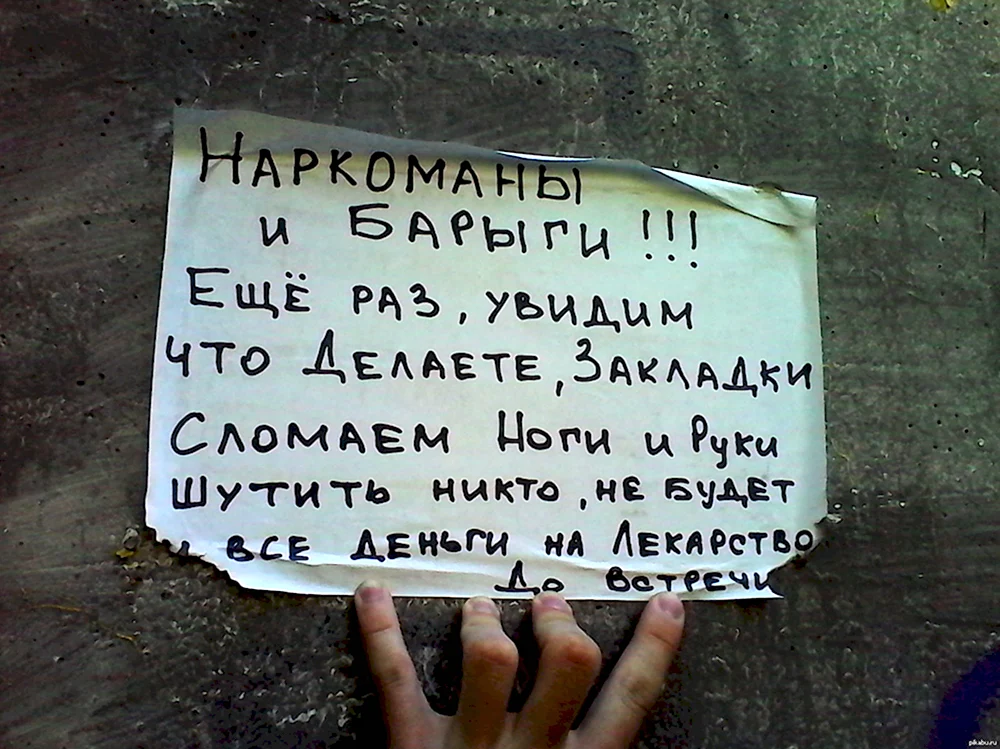 НАРКОМАНЫ
и БАРЫГИ !!!
ЕЩЁ РАЗ, УВИДИМ
ЧТО ДЕЛАЕТЕ, ЗАКЛАДКИ
СЛОМАЕМ НОГИ и РУКИ
ШУТИТЬ НИКТО, НЕ БУДЕТ
ВСЕ ДЕНЬГИ НА ЛЕКАРСТВО
ДО ВСТРЕЧИ
pikabu.ru